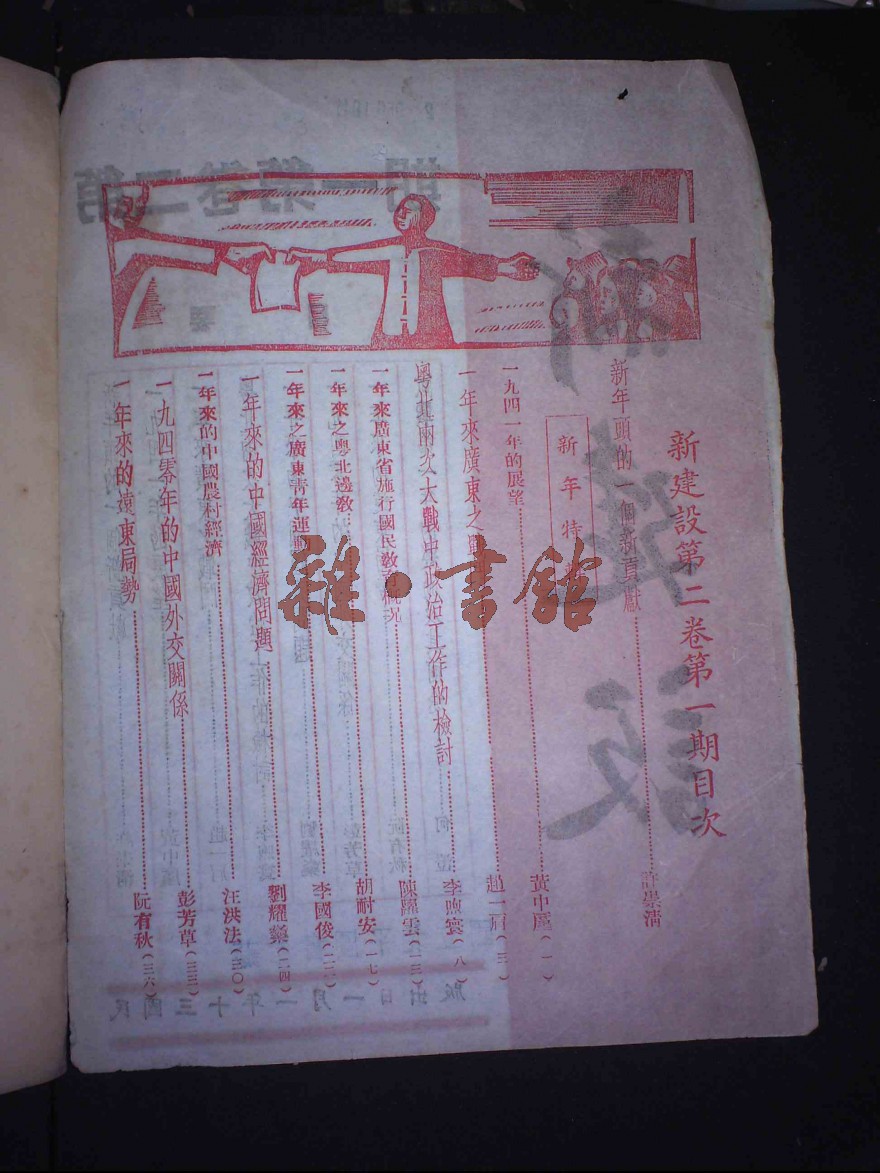 新建設第二卷第一期目次
新年頭的一個新貢獻 許崇清
新年特
一九四一年的展望 黃中廑(一)
一年來廣東之 趙一肩(三)
粵北兩次大戰中政治工作的檢討 李煦寰(八)
一年來廣東省施行國民教育概况 陳躍雲(一三)
一年來之粵北邊教 胡耐安(一七)
一年來之廣東靑年運動 李國俊(二二)
一年來的中國經濟問題 劉耀燊(二四)
一年來的中國農村經濟 汪洪法(三〇)
一九四零年的中國外交關係 彭芳草(三三)
一年來的遠東局勢 阮有秋(三六)
雜·書館
第二卷第一期
新建設
民國三十年一月一日出版